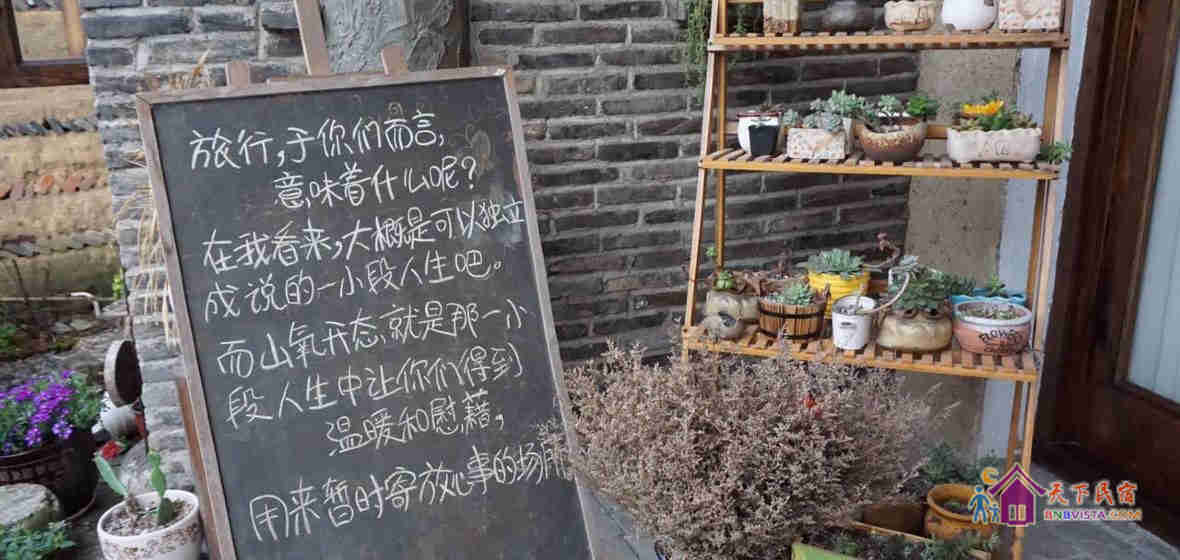 旅行,于你们而言,
意味着什么呢?
在我看来,大概是可以独立
成说的一小段人生吧。
而山氧开态,就是那一小
段人生中让你们得到
温暖和慰藉,
用来暂时寄放心事的场所
天下民宿
BNBVISTA.COM